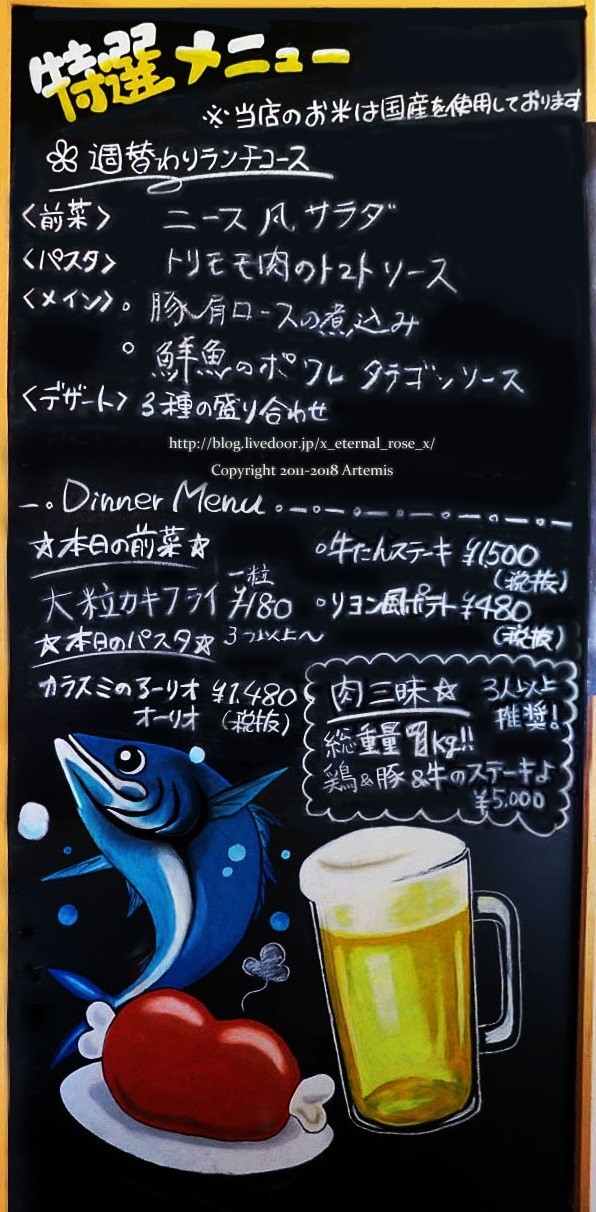 特選メニュー
※当店のお米は国産を使用しております
週替わりランチコース
〈前菜〉 ニース風サラダ
〈パスタ〉 トリモモ肉のトマトソース
〈メイン〉。豚肩ロースの煮込み
。鮮魚のポワレ タラゴンソース
〈デザート〉3種の盛り合わせ
http://blog.livedoor.jp/x_eternal_rose_x/
Copyright 2011-2018 Artemis
Dinner Menu
☆本日の前菜☆
一粒
大粒カキフライ ¥180
3つ以上〜
☆本日のパスタ☆
カラスミのアーリオ ¥1,480
オーリオ (税抜)
。牛たんステーキ ¥1,500
(税抜)
。リヨン風ポテト ¥480
(税抜)
肉三昧☆ 3人以上
推奨!
総重量1kg!!
鶏&豚&牛のステーキよ
¥5,000